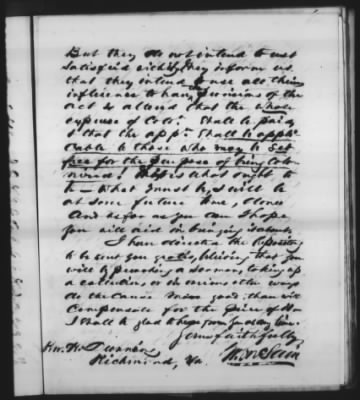 But they do not intend to rest
satisfied with they inform us
that they intend to use all their
influence to have provisions of the
act so altered that the whole
expense of Colo. shall be paid,
& that the appn. shall be appli
cable to those who may be set
free for the purpose of being Colo-
nized! This is what ought to
be — What must be, & will be
at some future time, done.
And so far as you can I hope
you will aid in bringing it about.
I have directed the Repository
to be sent you gratis, believing that you
will by preaching a sermon, taking up
a collection or in some other ways
do the Cause more good, than will
Compensate for the price of it.
I shall be glad to hear from you at any time.
Yours faithfully,
W. McLain
Rev. W.
Richmond, Va.